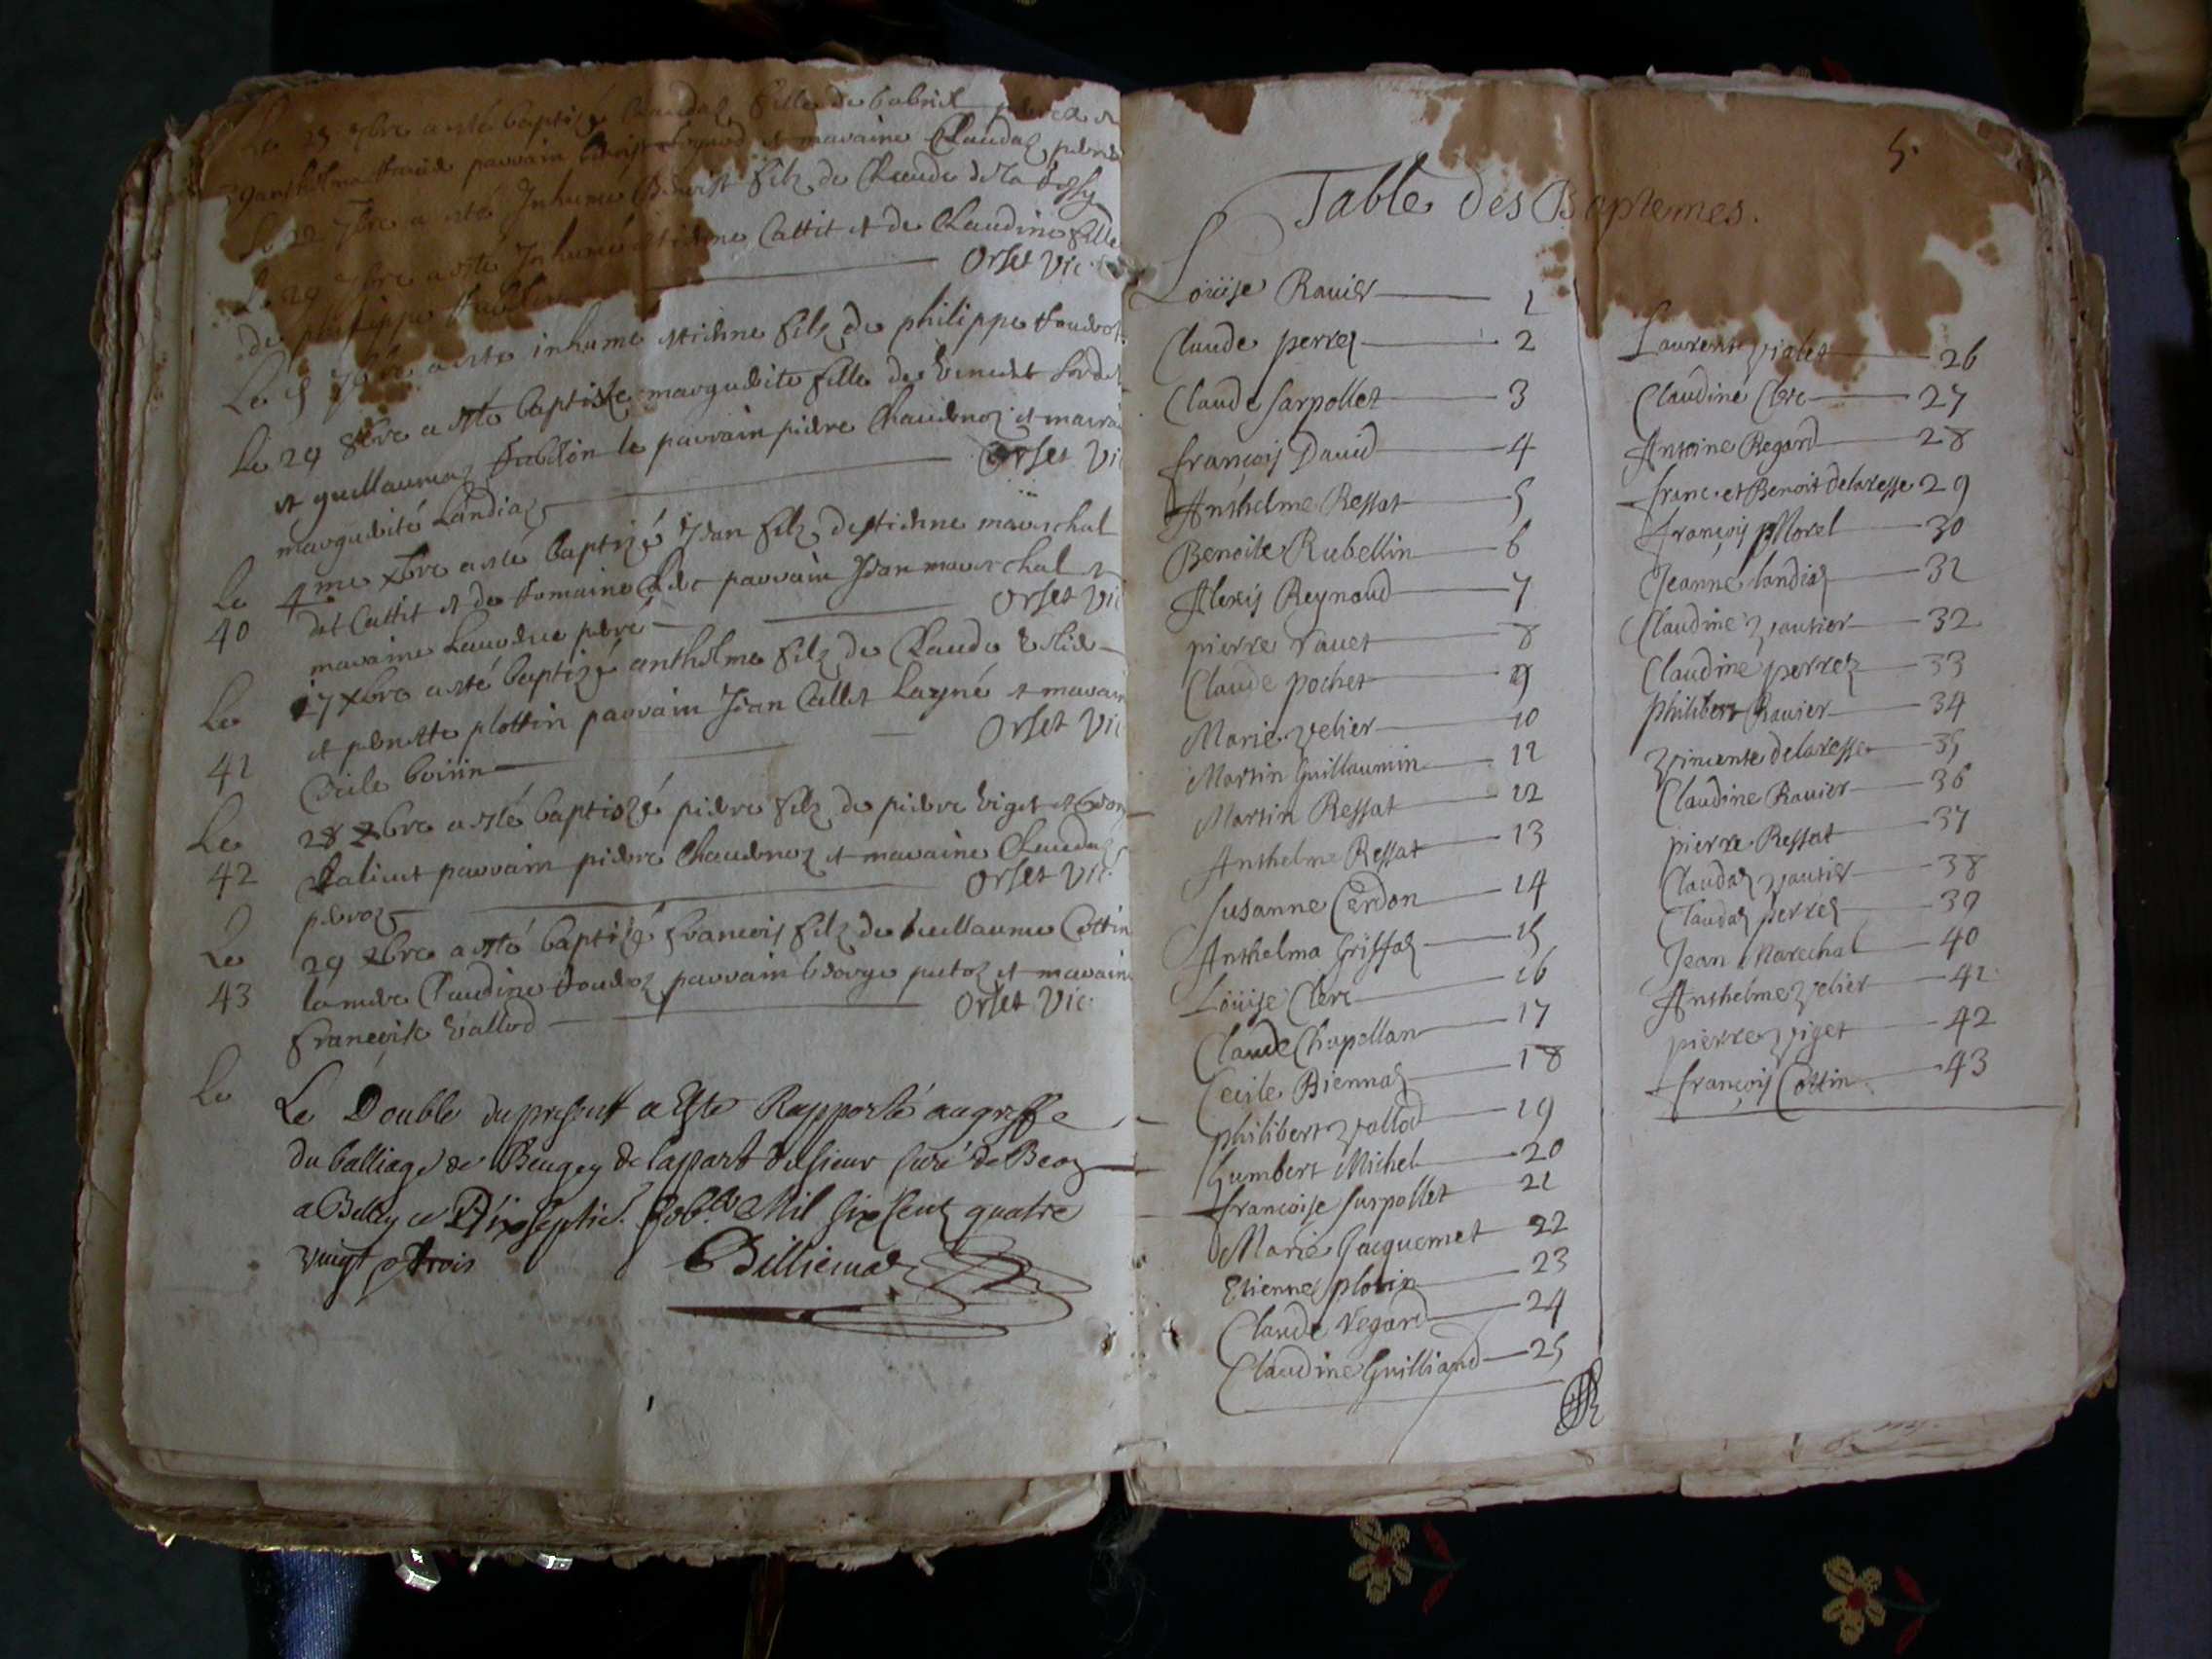 Le 25 7bre a esté baptizé Claudaz fille de Gabriel perret et
parrain et maraine Claudaz perret
Le 22 7bre a esté Inhumé Benoist filz de Claude
Le 29 7bre a esté Inhumé estienne Cattit et de Claudine fille
de philippe
Orset Vic.
Le 5 a esté inhume estienne filz de philippe
Le 29 8bre a esté baptizée marguerite fille de
et guillaumaz le parrain pierre Chaudenoz et marai
marguerite Landiaz
Orset Vi
Le 4me xbre a esté baptizé Jean filz destienne mareschal
40 dit Cattit et de parrain Jean mareschal et
maraine
Orset Vic
Le 17 xbre a esté baptizé anthelme filz de Claude Velie
41 et pernette plottin parrain Jean Callet Layné et marain
Cecile
Orset Vic
Le 28 xbre a esté baptizé pierre filz de pierre Viget et
42 parrain pierre Chaudenoz et maraine Claudaz
peroz
Orset Vic.
Le 29 xbre a esté baptizé francois filz de Guillaume Cottin
43 la mere Claudine parrain George putoz et maraine
francoise Vallod
Orset Vic.
Le
Le Double du present a Este Rapporté au greffe
du balliage de Beugey de la part du sieur Curé de Beoz
a Belley ce Dixseptie. Mil six Cent quatre
vingt trois
Billiemaz
5.
Table des Baptemes.
Loüise Rauier 1
Claude perrez 2
Claude sarpollet 3
françois Dauid 4
Anthelme Ressat 5
Benoite Rubellin 6
Alexis Reynaud 7
pierre rauet 8
Claude pochet 9
Marie velier 10
Martin Guillaumin 11
Martin Ressat 12
Anthelme Ressat 13
Susanne Cerdon 14
Anthelma Griffaz 15
Loüise Clerc 16
Claude Chapellan 17
Cecile Biennaz 18
philibert vallod 19
humbert Michel 20
françoise sarpollet 21
Marie Jacquemet 22
Etienne plotin 23
Claude Regard 24
Claudine Guilliand 25
Laurent violet 26
Claudine Clerc 27
Antoine Regard 28
franc. et Benoit delaresse 29
françois Morel 30
Jeanne landiaz 31
Claudine vautier 32
Claudine perrez 33
philibert Rauier 34
vincente delaresse 35
Claudine Rauier 36
pierre Ressat 37
Claudaz vautier 38
Claudaz perrez 39
Jean Marechal 40
Anthelme velier 41
pierre viget 42
françois Cottin 43